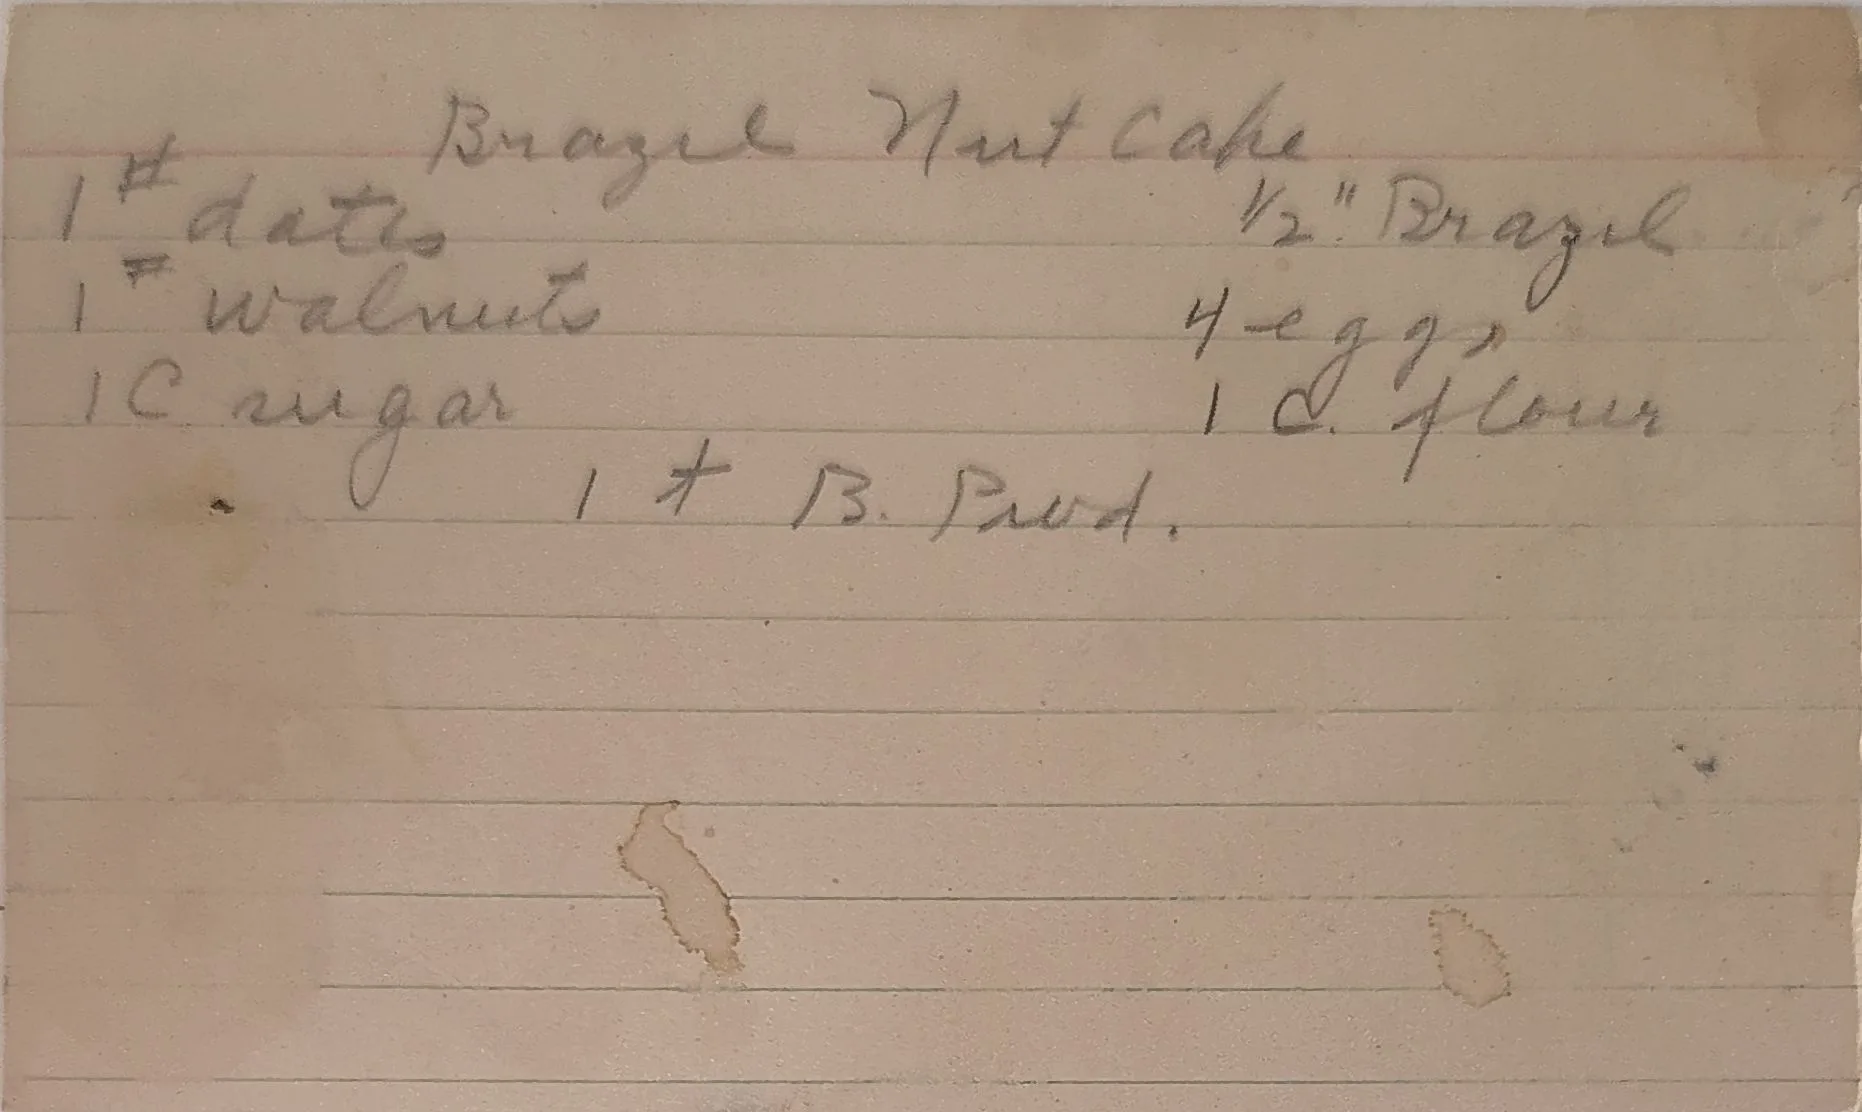 Brazil Nut Cake
1 # dates 1/2 " Brazil
1 # walnuts 4 eggs
1 C sugar 1 C. flour
1 t B. Pwd.